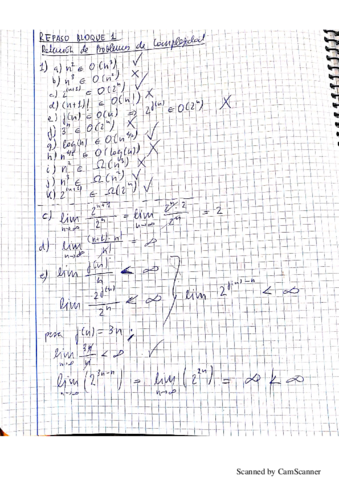 REPASO BLOQUE 1
Relación de Problemas de Complejidad
1) a) n² ∈ O(n³) ✓
b) n³ ∈ O(n²) X
c) 2^(n+1) ∈ O(2^n) ✓
d) (n+1)! ∈ O(n!) X
e) f(n) ∈ O(n) ⇒ 2^f(n) ∈ O(2^n) X
f) 3^n ∈ O(2^n) X
g) log(n) ∈ O(n^1/2) ✓
h) n^1/2 ∈ O(log(n)) X
i) n² ∈ Ω(n³) X
j) n³ ∈ Ω(n²) ✓
k) 2^(n+1) ∈ Ω(2^n) ✓
c) lim n→∞ 2^(n+1)/2^n = lim n→∞ 2^n·2/2^n = 2
d) lim n→∞ (n+1)·n!/n! = ∞
e) lim n→∞ f(n)/n < ∞
lim n→∞ 2^f(n)/2^n < ∞ } lim 2^(f(n)-n) < ∞
para f(n) = 3n;
lim n→∞ 3n/n < ∞ ✓
lim n→∞ (2^(3n-n)) = lim n→∞ (2^(2n)) = ∞ < ∞
Scanned by CamScanner